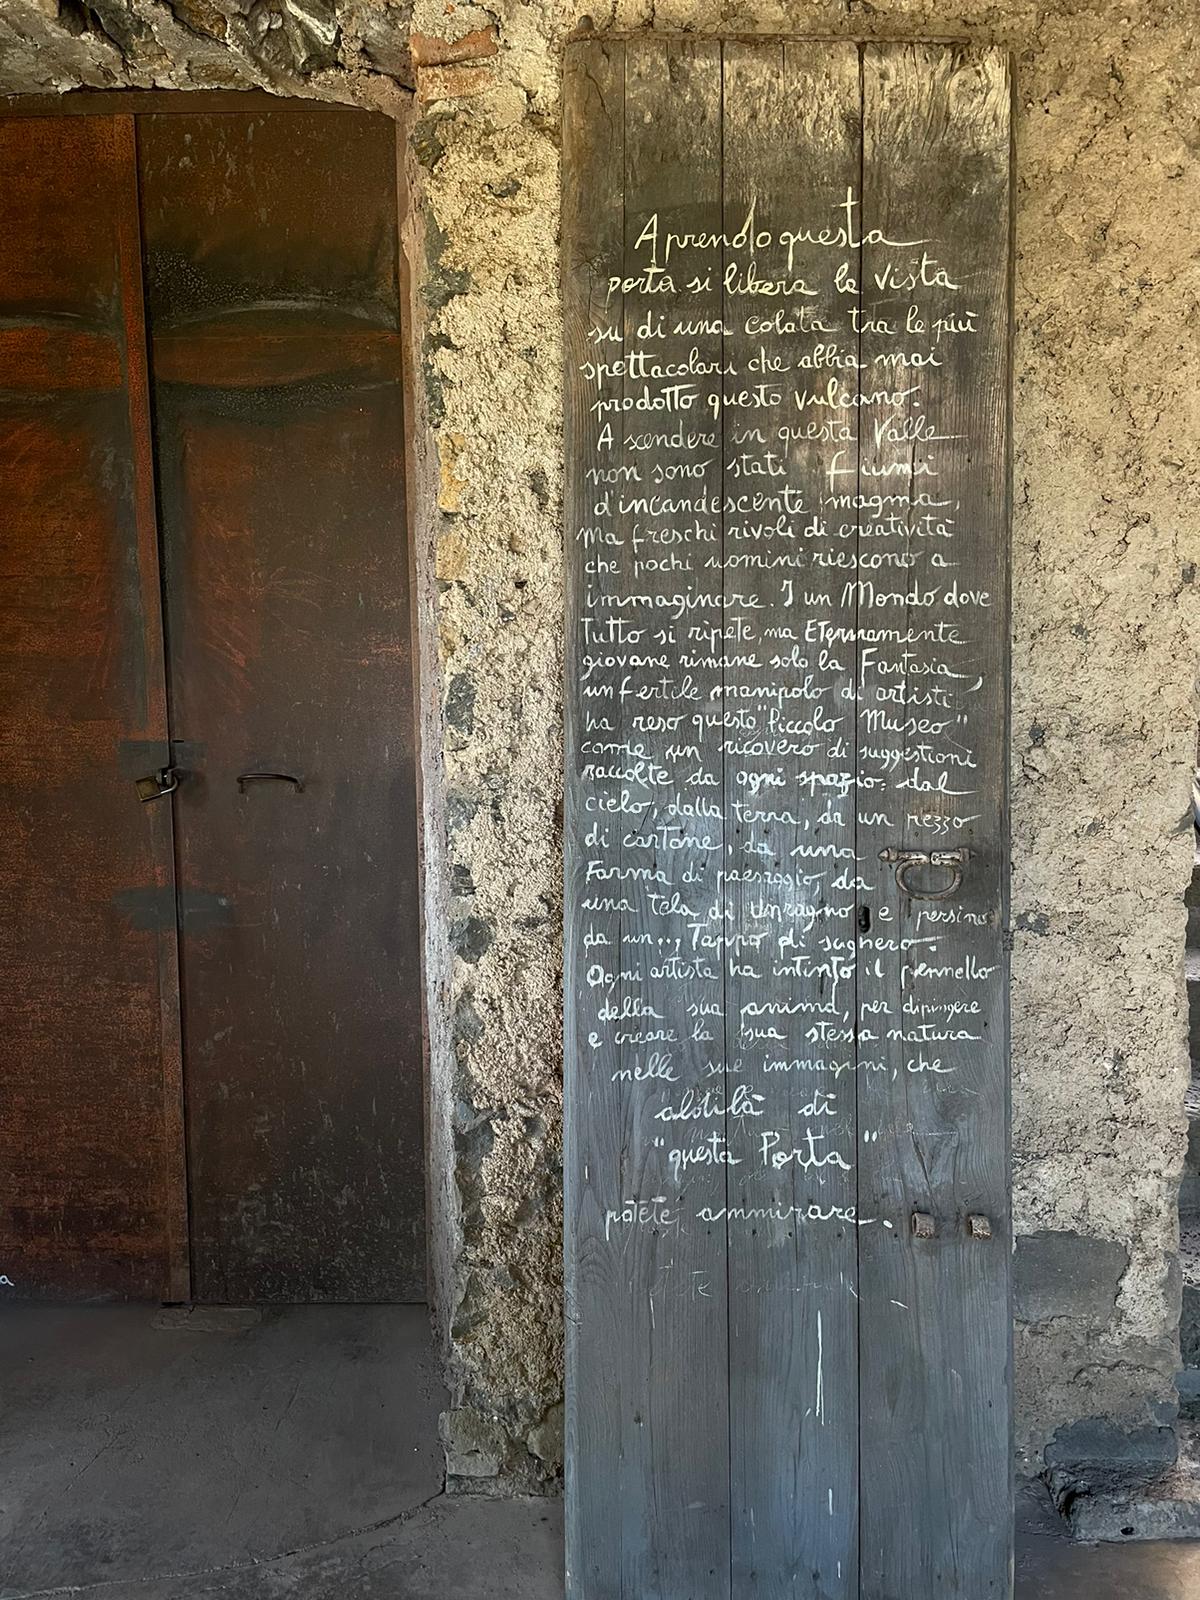 Aprendo questa
porta si libera la vista
su di una colata tra le più
spettacolari che abbia mai
prodotto questo vulcano.
A scendere in questa Valle
non sono stati fiumi
d'incandescente magma,
ma freschi rivoli di creatività
che pochi uomini riescono a
immaginare. I un Mondo dove
Tutto si ripete, ma Eternamente
giovane rimane solo la Fantasia,
un fertile manipolo di artisti
ha reso questo "Piccolo Museo"
come un ricovero di suggestioni
raccolte da ogni spazio: dal
cielo, dalla terra, da un pezzo
di cartone, da una
Forma di paesaggio, da
una tela di un ragno e persino
da un... Tappo di sughero.
Ogni artista ha intinto il pennello
della sua anima, per dipingere
e creare la sua stessa natura
nelle sue immagini, che
aldilà di
"questa Porta"
potete ammirare.
a